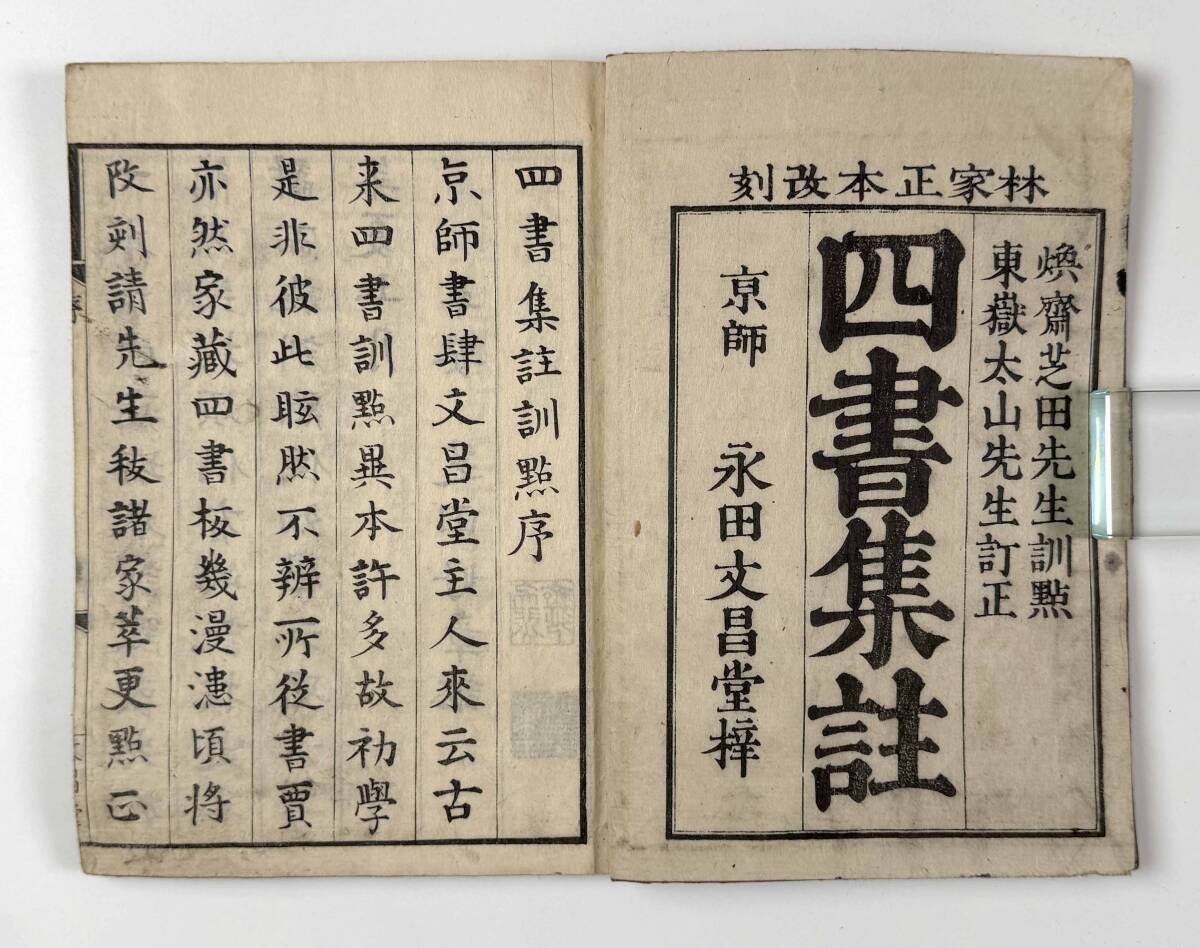 林家正本改刻
煥齋芝田先生訓點
東嶽太山先生訂正
四書集註
京師 永田文昌堂梓
四書集註訓點序
京師書肆文昌堂主人來云古
来四書訓點異本許多故初學
是非彼此眩然不辨所從書賈
亦然家藏四書板幾漫漶頃將
改刻請先生秡諸家萃更點正